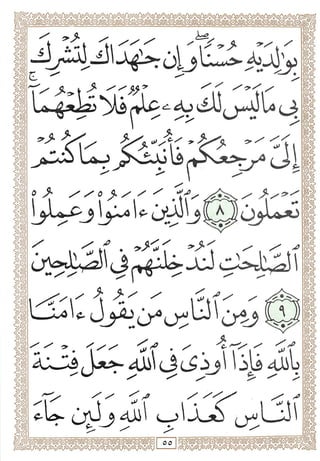 بِوَٰلِدَيْهِ حُسْنًا ۖ وَإِن جَٰهَدَاكَ لِتُشْرِكَ
بِى مَا لَيْسَ لَكَ بِهِۦ عِلْمٌ فَلَا تُطِعْهُمَآ ۚ
إِلَىَّ مَرْجِعُكُمْ فَأُنَبِّئُكُم بِمَا كُنتُمْ
تَعْمَلُونَ ٨ وَٱلَّذِينَ ءَامَنُوا۟ وَعَمِلُوا۟
ٱلصَّٰلِحَٰتِ لَنُدْخِلَنَّهُمْ فِى ٱلصَّٰلِحِينَ
٩ وَمِنَ ٱلنَّاسِ مَن يَقُولُ ءَامَنَّا
بِٱللَّهِ فَإِذَآ أُوذِىَ فِى ٱللَّهِ جَعَلَ فِتْنَةَ
ٱلنَّاسِ كَعَذَابِ ٱللَّهِ وَلَئِن جَآءَ
٥٥